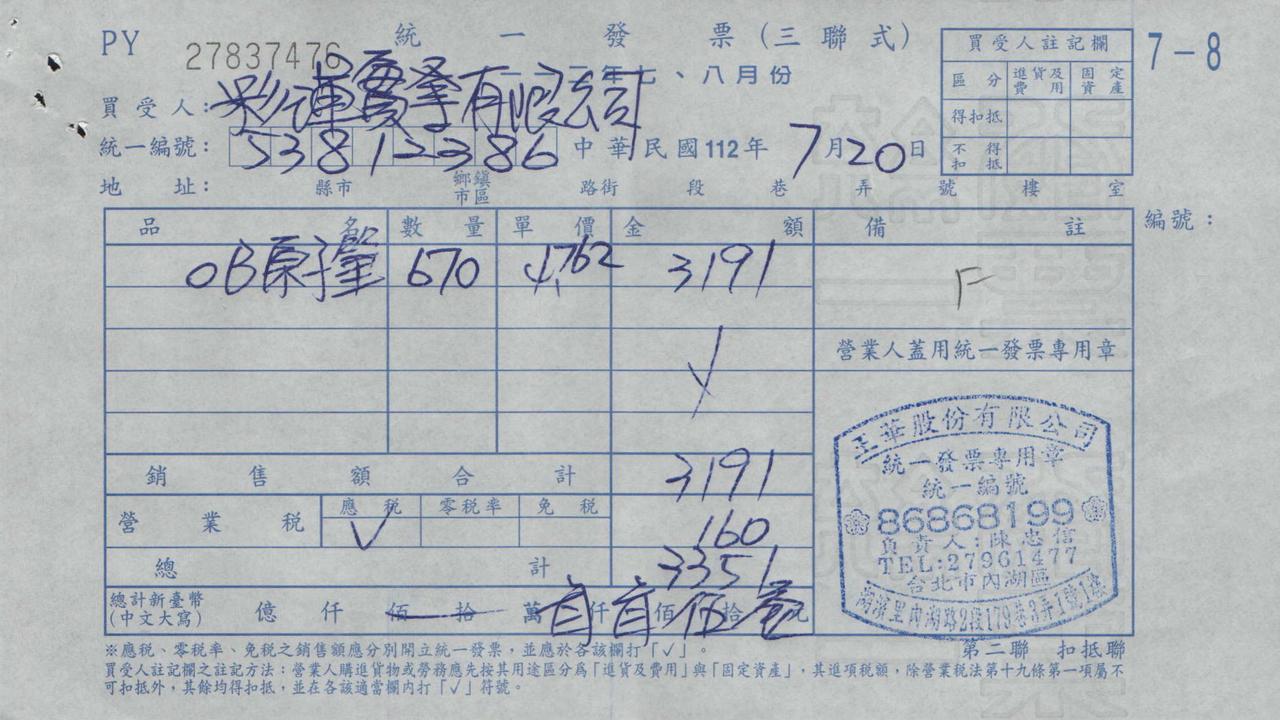 PY 27837476 統一發票(三聯式) 7-8
一一二年七、八月份
買受人:彩運實業有限公司
統一編號:53812386 中華民國112年7月20日
買受人註記欄
區分 進貨及費用 固定資產
得扣抵
不得扣抵
地址: 縣市 鄉鎮市區 路街 段 巷 弄 號 樓 室
品名 數量 單價 金額 備註 編號:
OB原子筆 670 4.762 3191
營業人蓋用統一發票專用章
銷售額合計 3191
營業稅 應稅 零稅率 免稅
V 160
總計 3351
總計新臺幣(中文大寫) 億 仟 佰 拾 萬 仟 佰 伍 拾 元
股份有限公司
統一發票專用章
統一編號
86868199
負責人:陳忠信
TEL:27961477
台北市內湖區
湖濱里內湖路2段179巷3弄1號1樓
第二聯 扣抵聯
※應稅、零稅率、免稅之銷售額應分別開立統一發票,並應於各該欄打「√」。
買受人註記欄之註記方法:營業人購進貨物或勞務應先按其用途區分為「進貨及費用」與「固定資產」,其進項稅額,除營業稅法第十九條第一項屬不
可扣抵外,其餘均得扣抵,並在各該適當欄內打「√」符號。